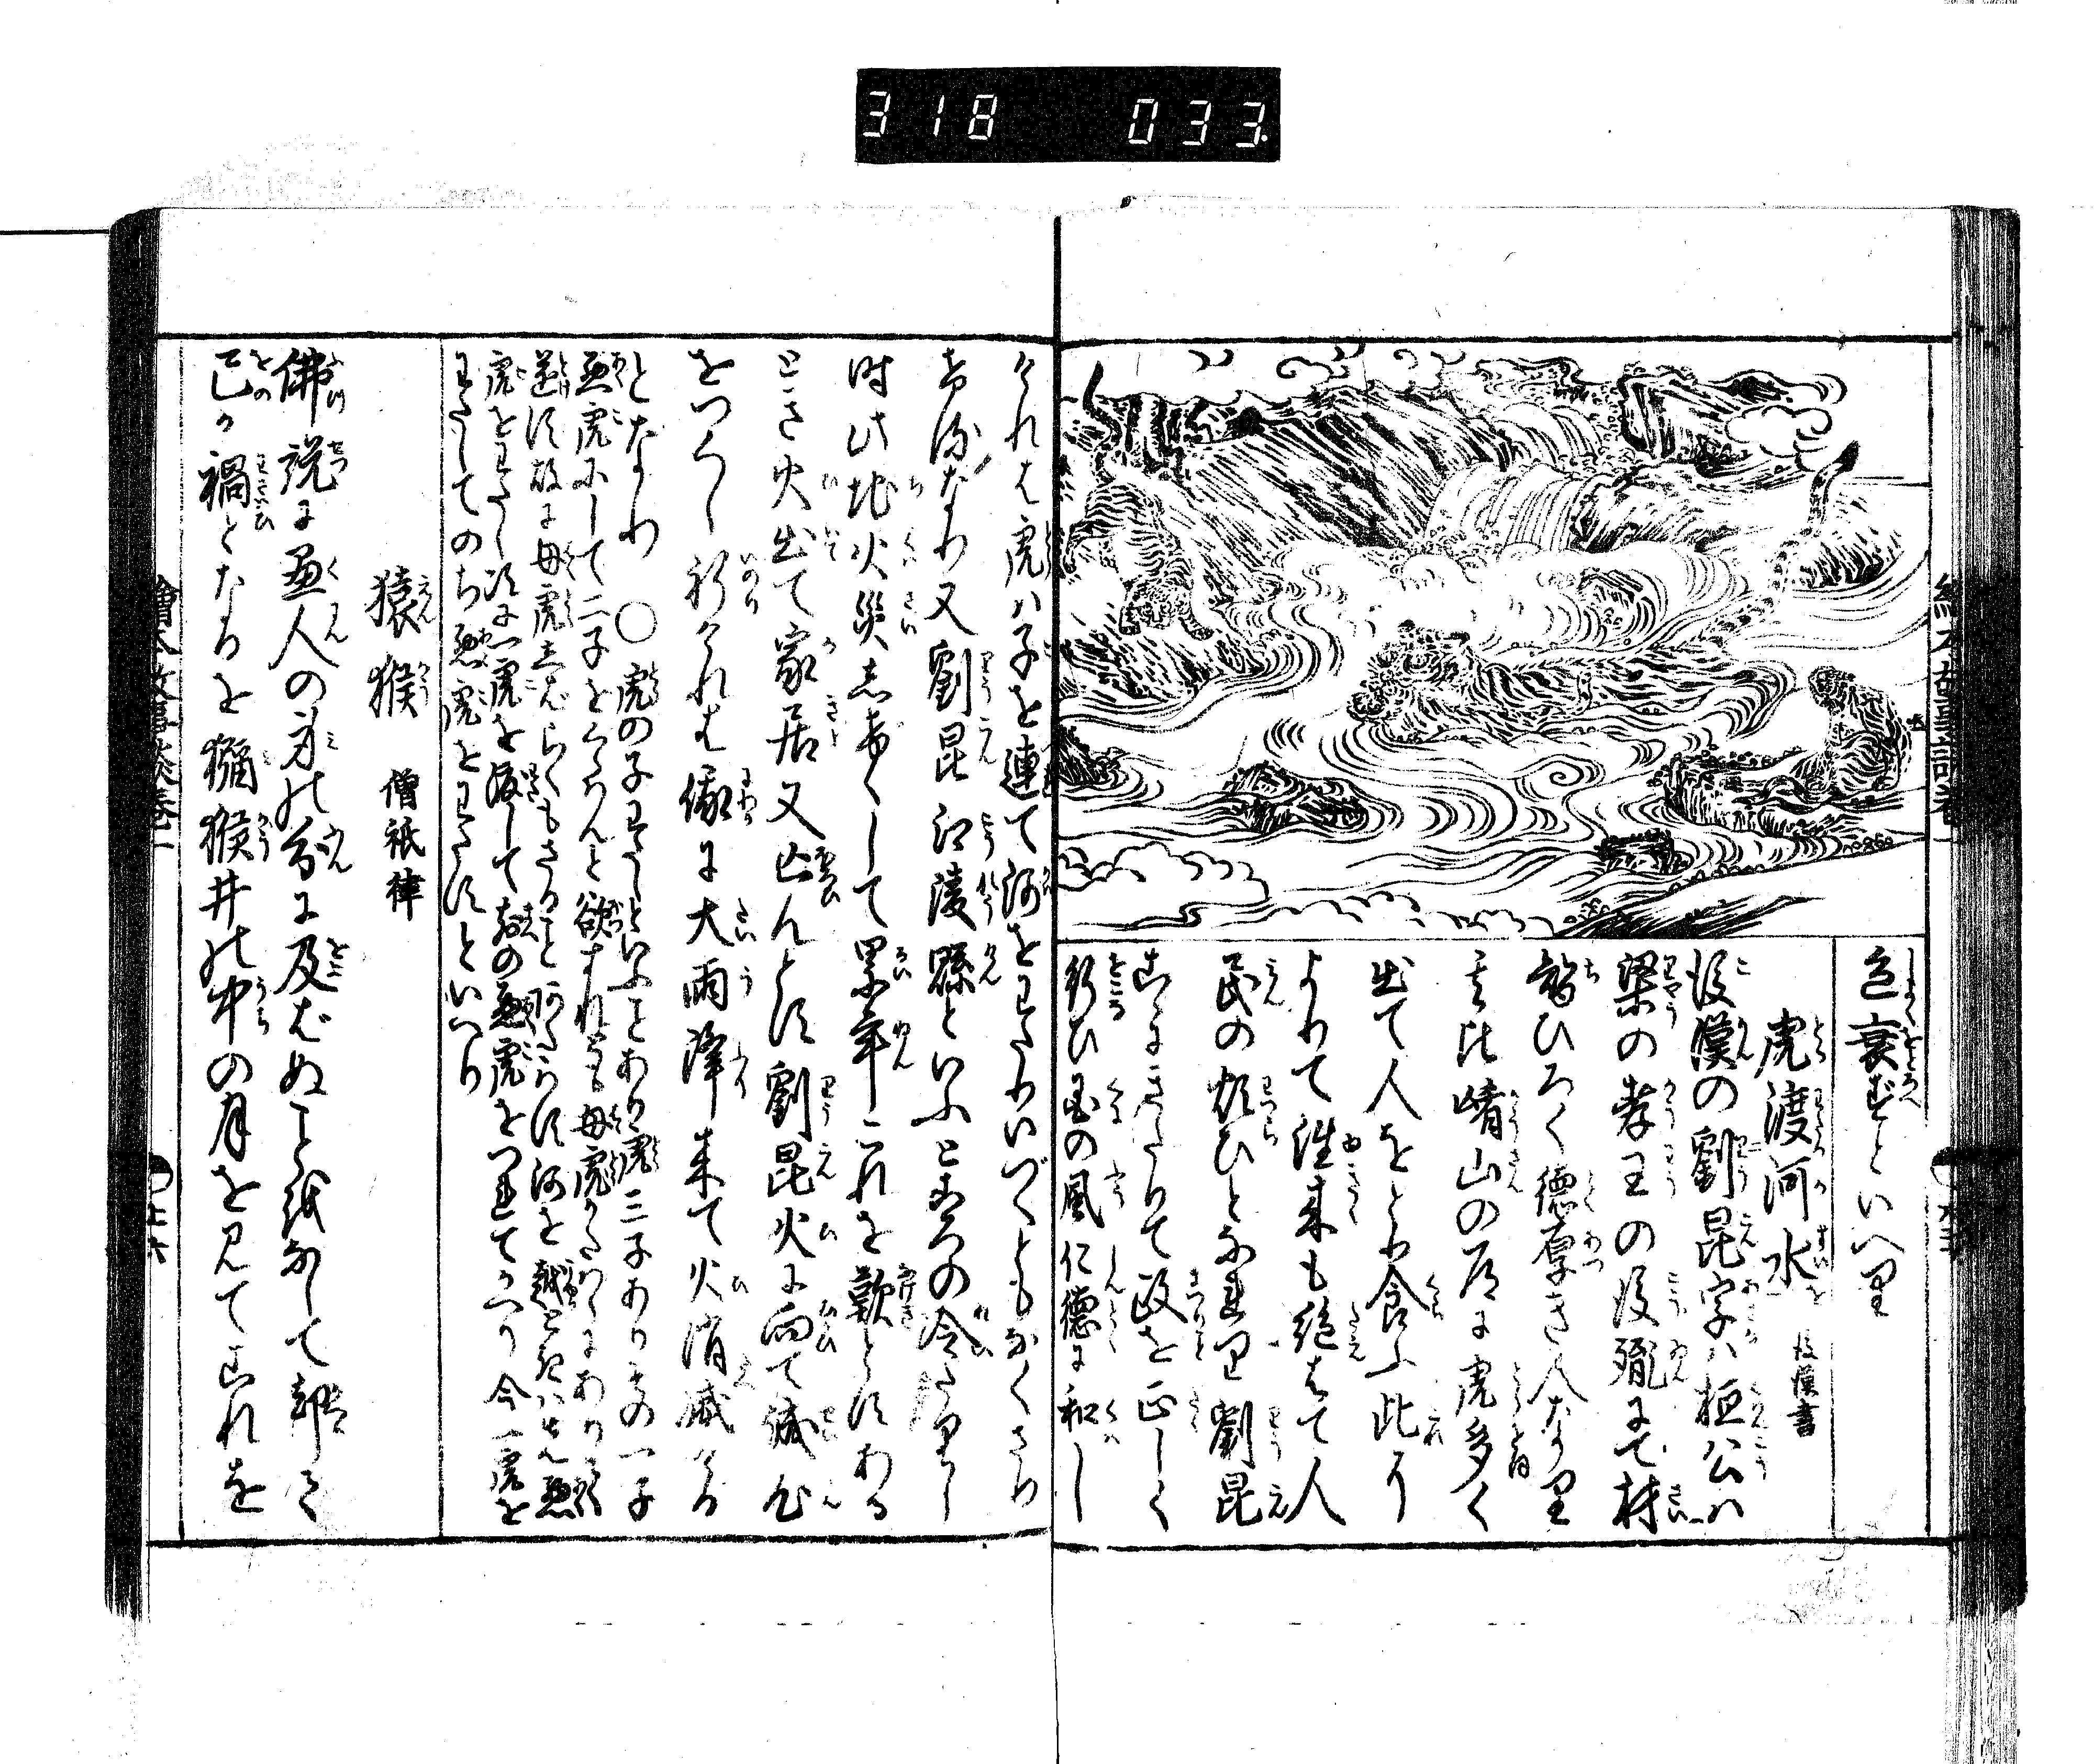 318 033
色衰ずといへり
虎渡河水 後漢書
後漢の劉昆字ハ桓公ハ
梁の孝王の後胤にて材
智ひろく徳厚き人なり
崤山の
に虎多く
出て人をとり食ふ此より
よりて往来も絶はて人
民の煩ひとなれり劉昆
こゝにきたりて政を正しく
行ひ国の風仁徳に和し
けれは虎ハ子を連て河をわたりいづくともなくさり
又劉昆江陵縣といふところの令たりし
時此地火災しば〱して累年これを歎とすある
とき火出て家居又亡んとす劉昆火に向て
をつくし祈けれは俄に大雨降来て火消滅ける
となり 〇虎の子わたしといふことあり虎三子あり其の一子
悪虎にして二子をくらはんと欲すれども母虎かたはらにあり
故に母虎しばらくもさることあたはず河を越ときハ先悪
虎をわたし次に一虎を渡して前の悪虎をつれてかへり今一虎を
わたしてのち悪虎をわたすといへり
猿猴 僧祇律
佛説に愚人の身の分に及ばぬことを
己が禍となるを獼猴井の中の月を見てこれを